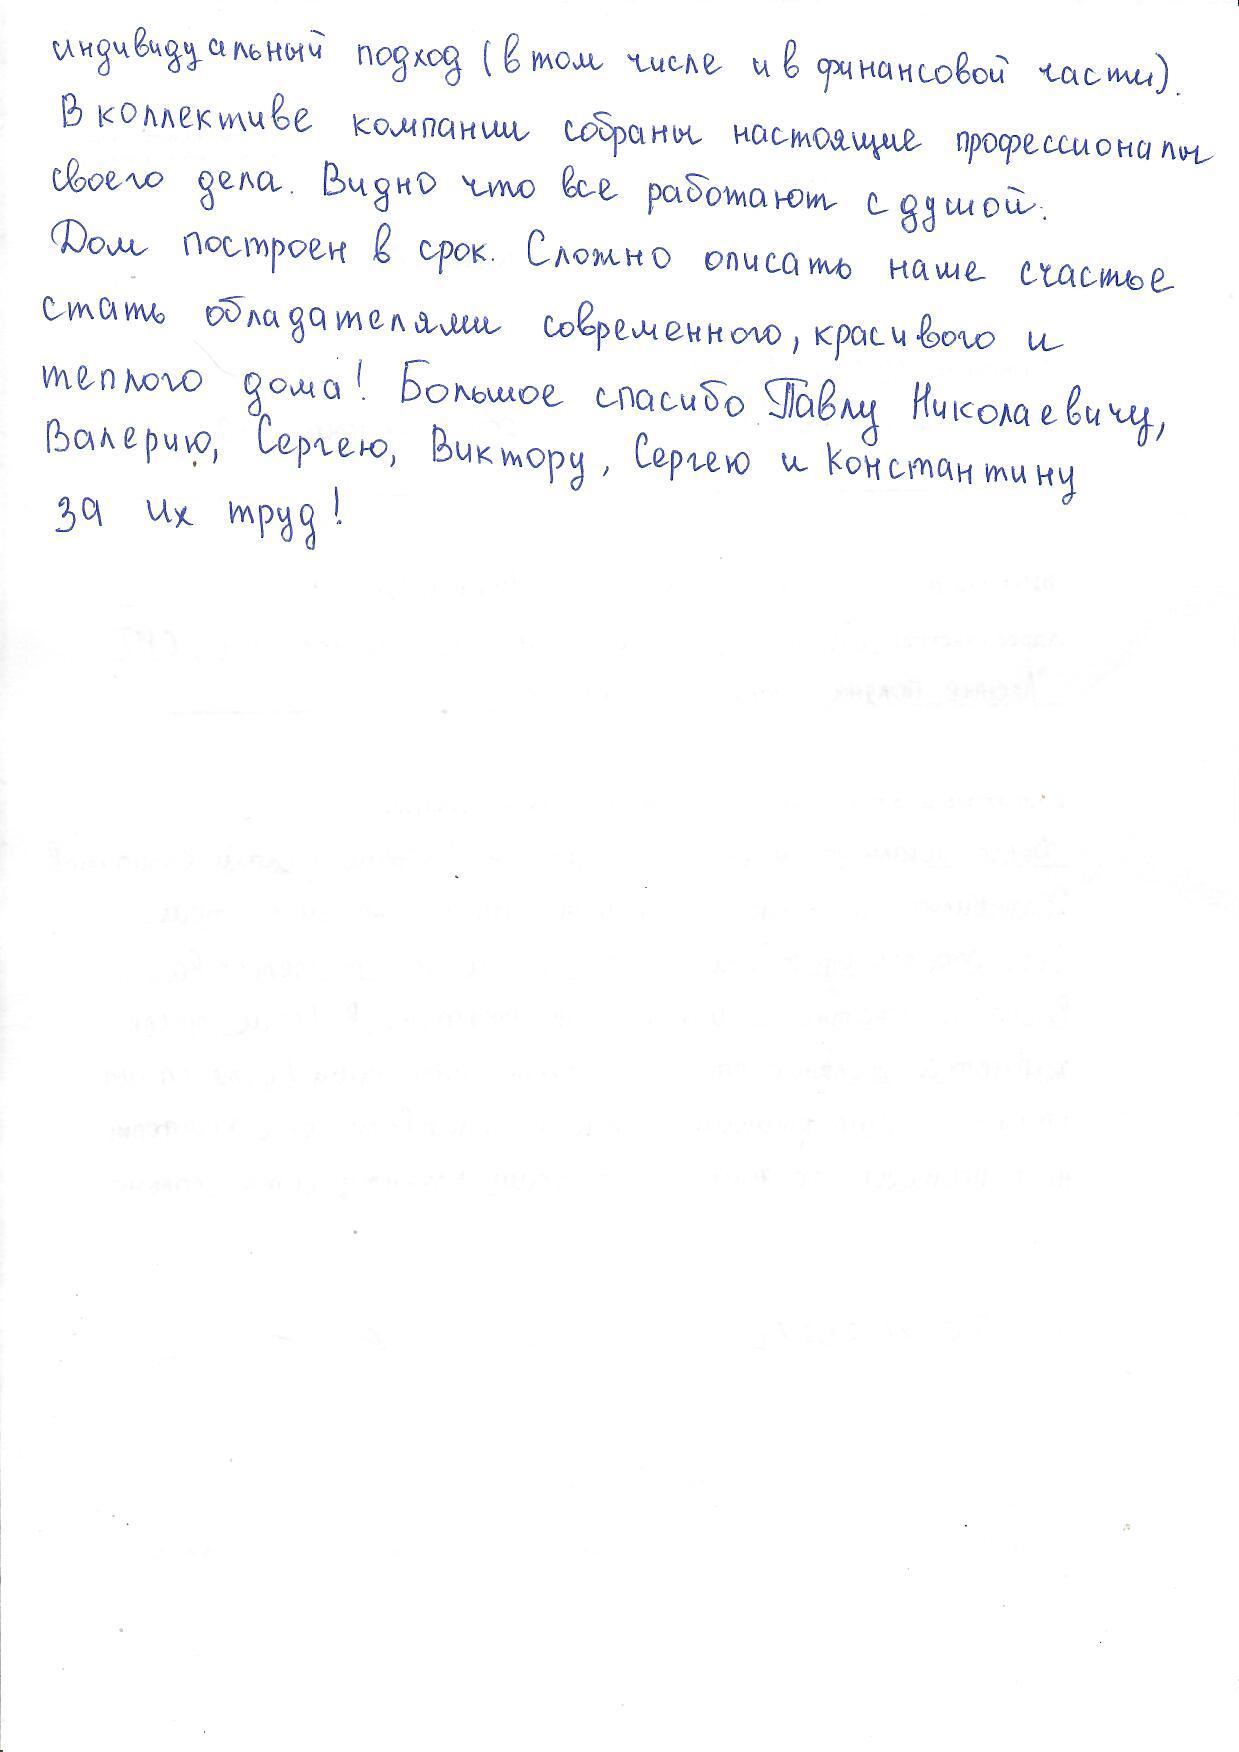 индивидуальный подход (в том числе и в финансовой части).
В коллективе компании собраны настоящие профессионалы
своего дела. Видно что все работают с душой.
Дом построен в срок. Сложно описать наше счастье
стать обладателями современного, красивого и
теплого дома! Большое спасибо Павлу Николаевичу,
Валерию, Сергею, Виктору, Сергею и Константину
за их труд!